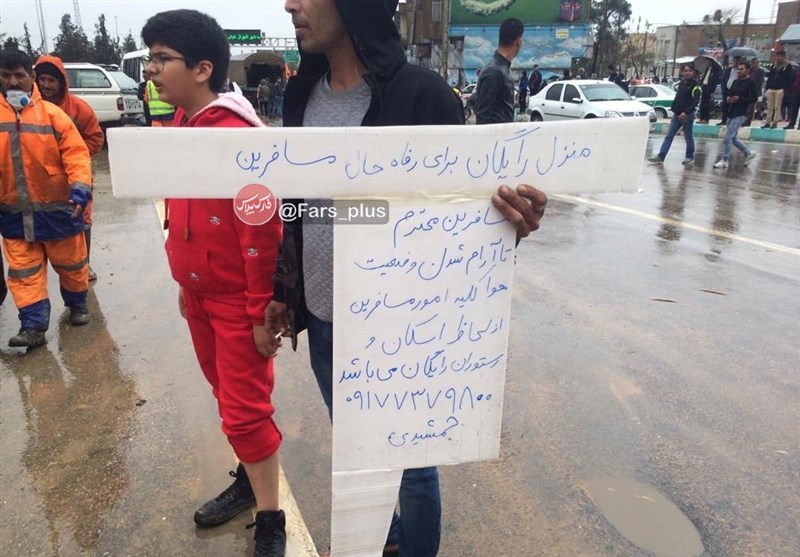 منزل رایگان برای رفاه حال مسافرین
فارس پلاس
@Fars_plus
مسافرین محترم
تا آرام شدن وضعیت
هوا کلیه امور مسافرین
از لحاظ اسکان و
رستوران رایگان می باشد
۰۹۱۷۷۳۷۹۸۰۰
جمشیدی